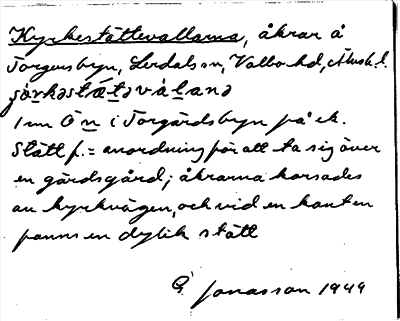 Kyrkestättevallarna, åkrar å
Torgersbyn, Lerdals sn, Valbo hd, Älvsb. l.
1 mm Ö n i Torgärdsbyn på ek.
Stätt f. = anordning för att ta sig över
en gärdsgård; åkrarna korsades
av kyrkvägen, och vid en kanten
fanns en dylik stätt
G. Jonasson 1949